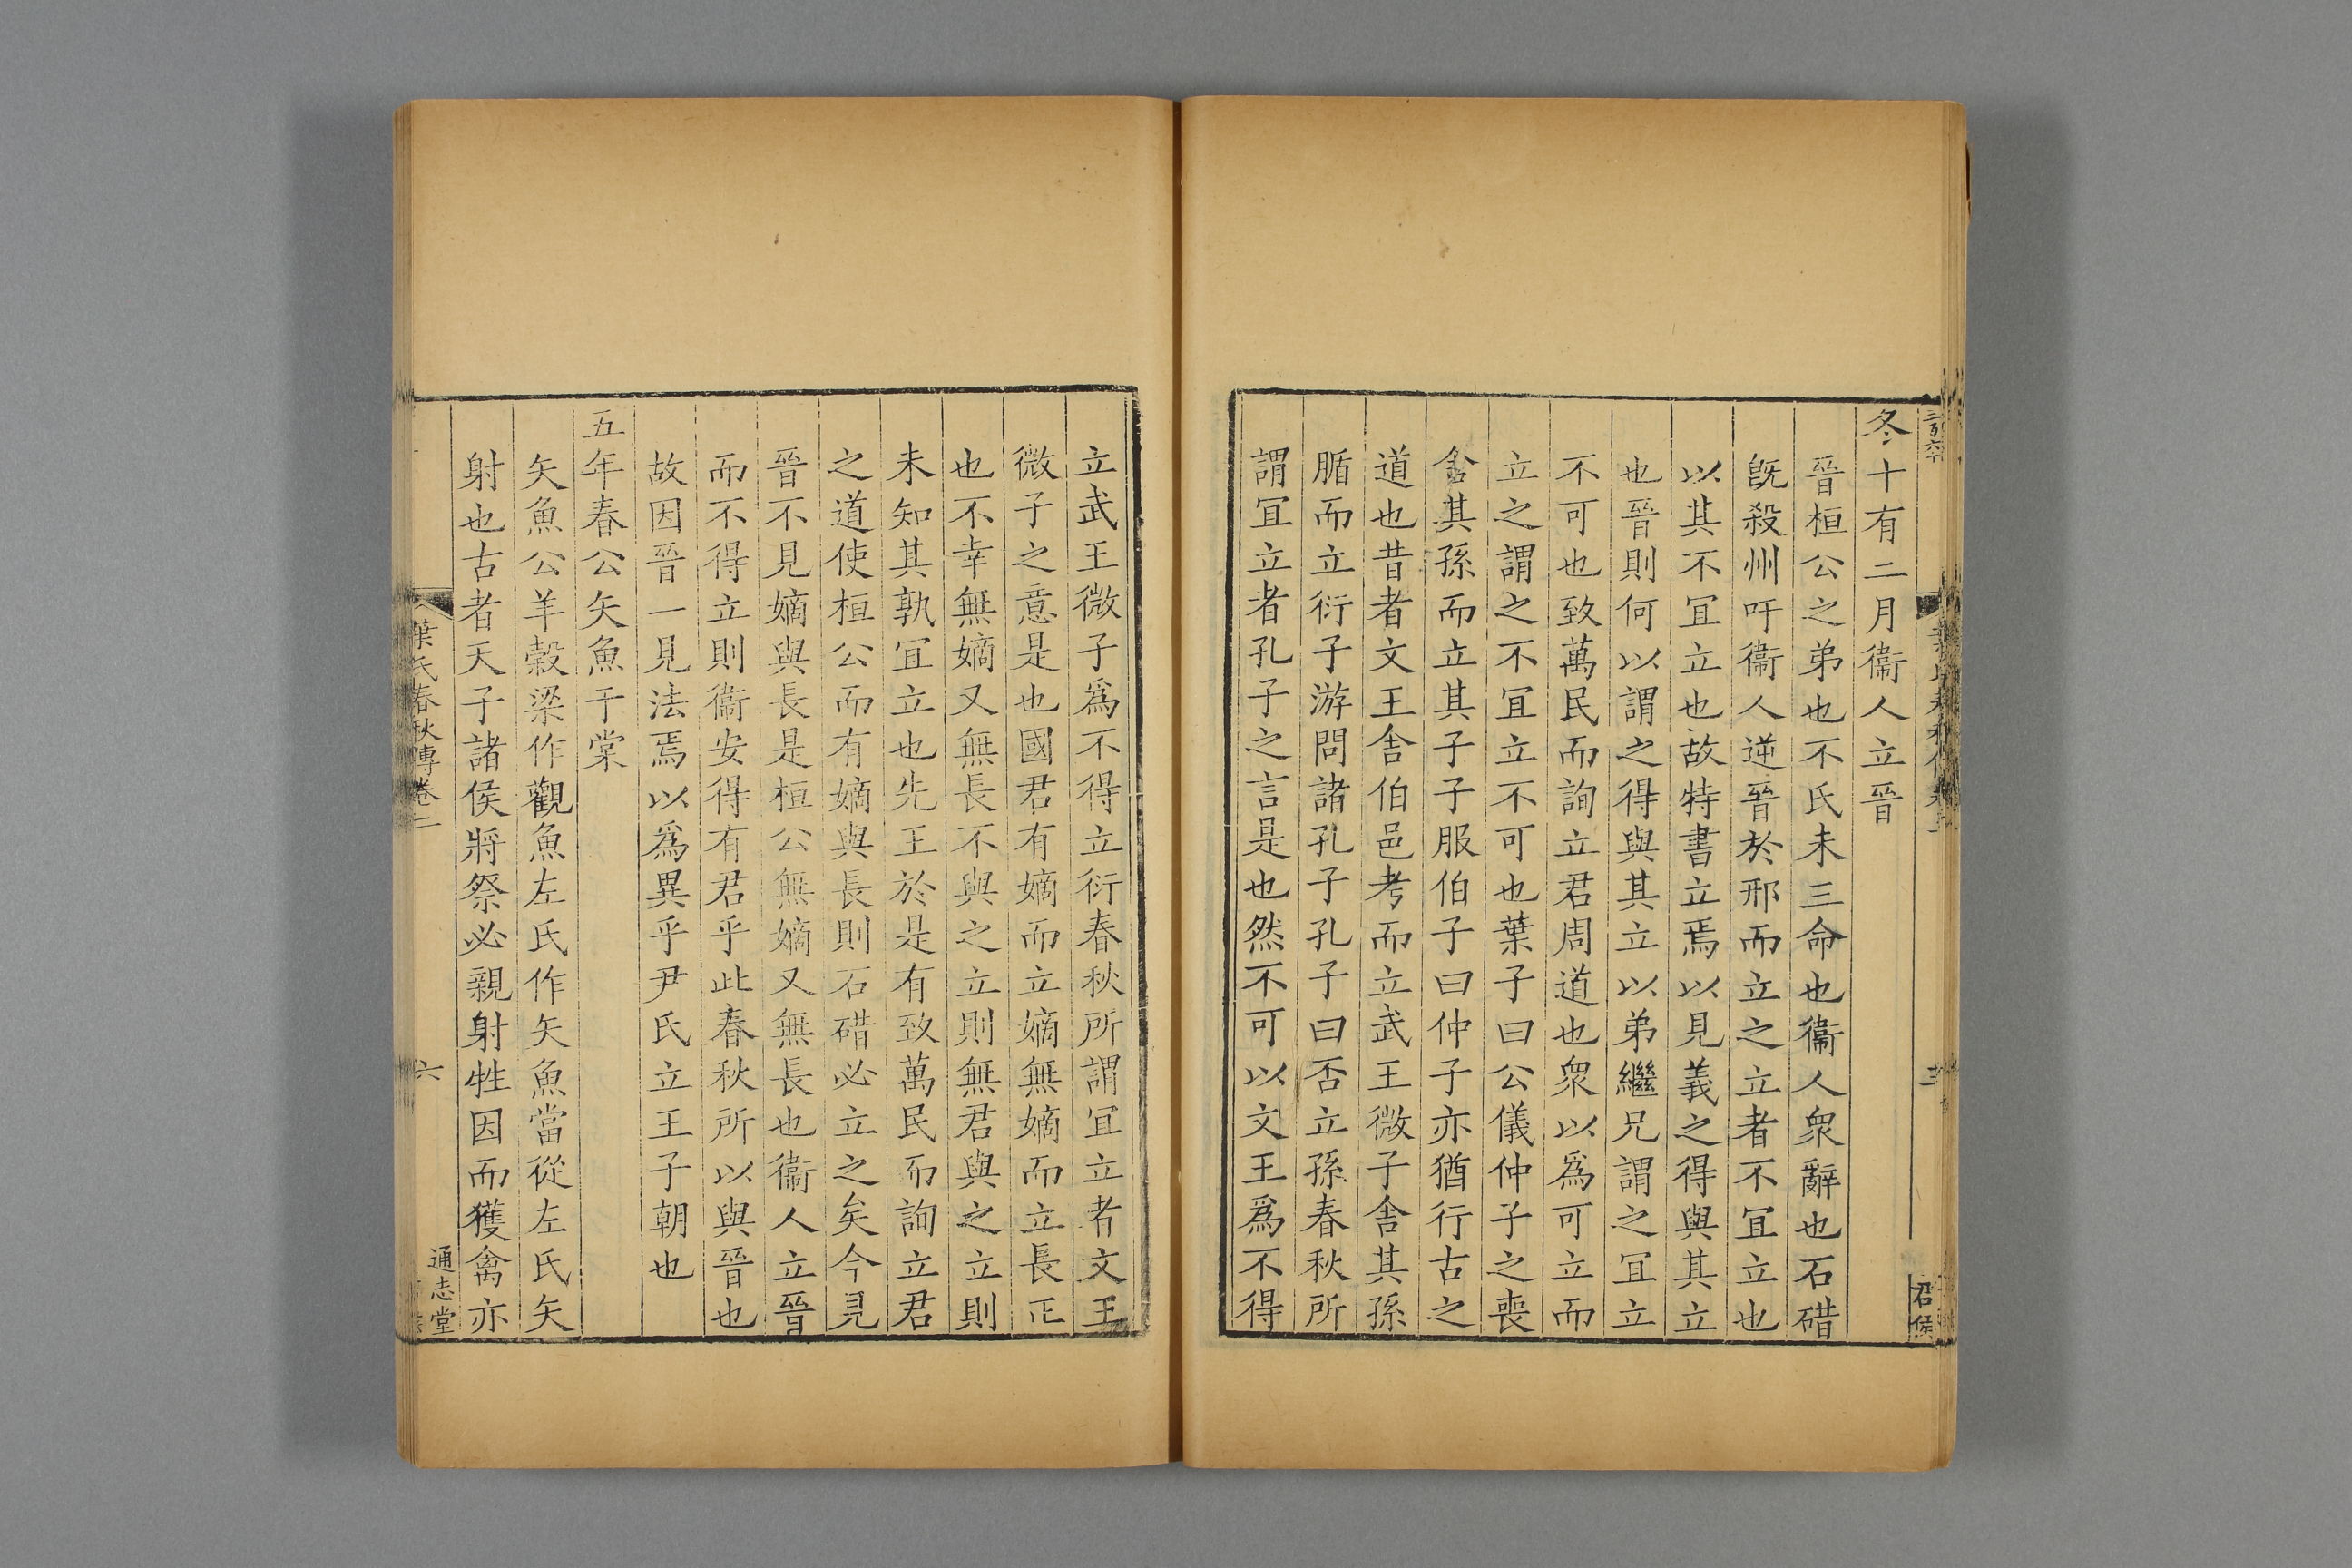 冬十有二月衞人立晉
晉桓公之弟也不氏未三命也衞人衆辭也石碏
旣殺州吁衞人逆晉於邢而立之立者不冝立也
以其不冝立也故特書立焉以見義之得與其立
也晉則何以謂之得與其立以弟繼兄謂之冝立
不可也致萬民而詢立君周道也衆以爲可立而
立之謂之不冝立不可也葉子曰公儀仲子之喪
舎其孫而立其子子服伯子曰仲子亦猶行古之
道也昔者文王舎伯邑考而立武王微子舎其孫
腯而立衍子游問諸孔子孔子曰否立孫春秋所
謂冝立者孔子之言是也然不可以文王爲不得
立武王微子爲不得立衍春秋所謂冝立者文王
微子之意是也國君有嫡而立嫡無嫡而立長正
也不幸無嫡又無長不與之立則無君與之立則
未知其孰冝立也先王於是有致萬民而詢立君
之道使桓公而有嫡與長則石碏必立之矣今見
晉不見嫡與長是桓公無嫡又無長也衞人立晉
而不得立則衞安得有君乎此春秋所以與晉也
故因晉一見法焉以爲異乎尹氏立王子朝也
五年春公矢魚于棠
矢魚公羊穀梁作觀魚左氏作矢魚當從左氏矢
射也古者天子諸侯將祭必親射牲因而獲禽亦
葉氏春秋傳卷二
六
通志堂